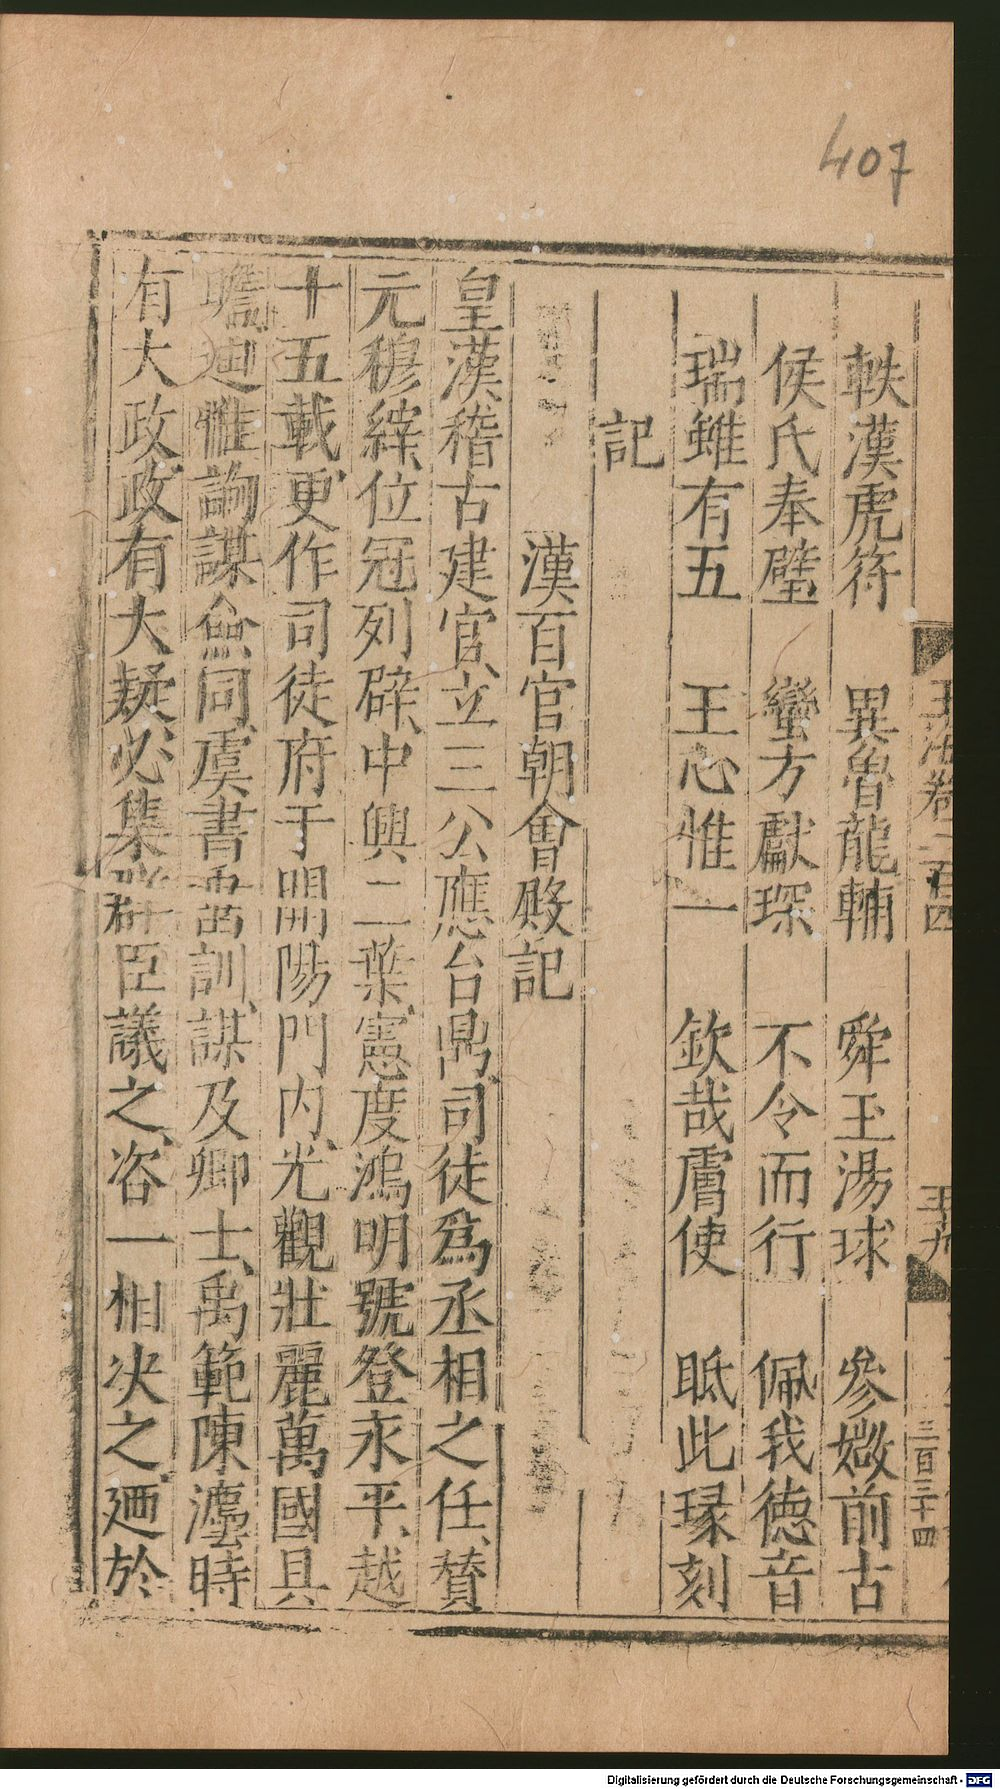 407
玉海卷二百四
三百三十四
軼漢虎符　異魯龍輔　舜玉湯球　參媺前古
侯氏奉璧　蠻方獻琛　不令而行　佩我德音
瑞雖有五　王心惟一　欽哉膚使　眡此瑑刻
記
漢百官朝會殿記
皇漢稽古建官、立三公應台鼎、司徒爲丞相之任、贊
元穆繂、位冠列辟、中興二葉、憲度鴻明、號登永平、越
十五載、更作司徒府于開陽門内、光觀壯麗、萬國具
瞻、迪惟詢謀僉同、虞書訓、謀及卿士、禹範陳、時
有大政、政有大疑、必集群臣議之、咨一相决之、廼於
Digitalisierung gefördert durch die Deutsche Forschungsgemeinschaft - DFG